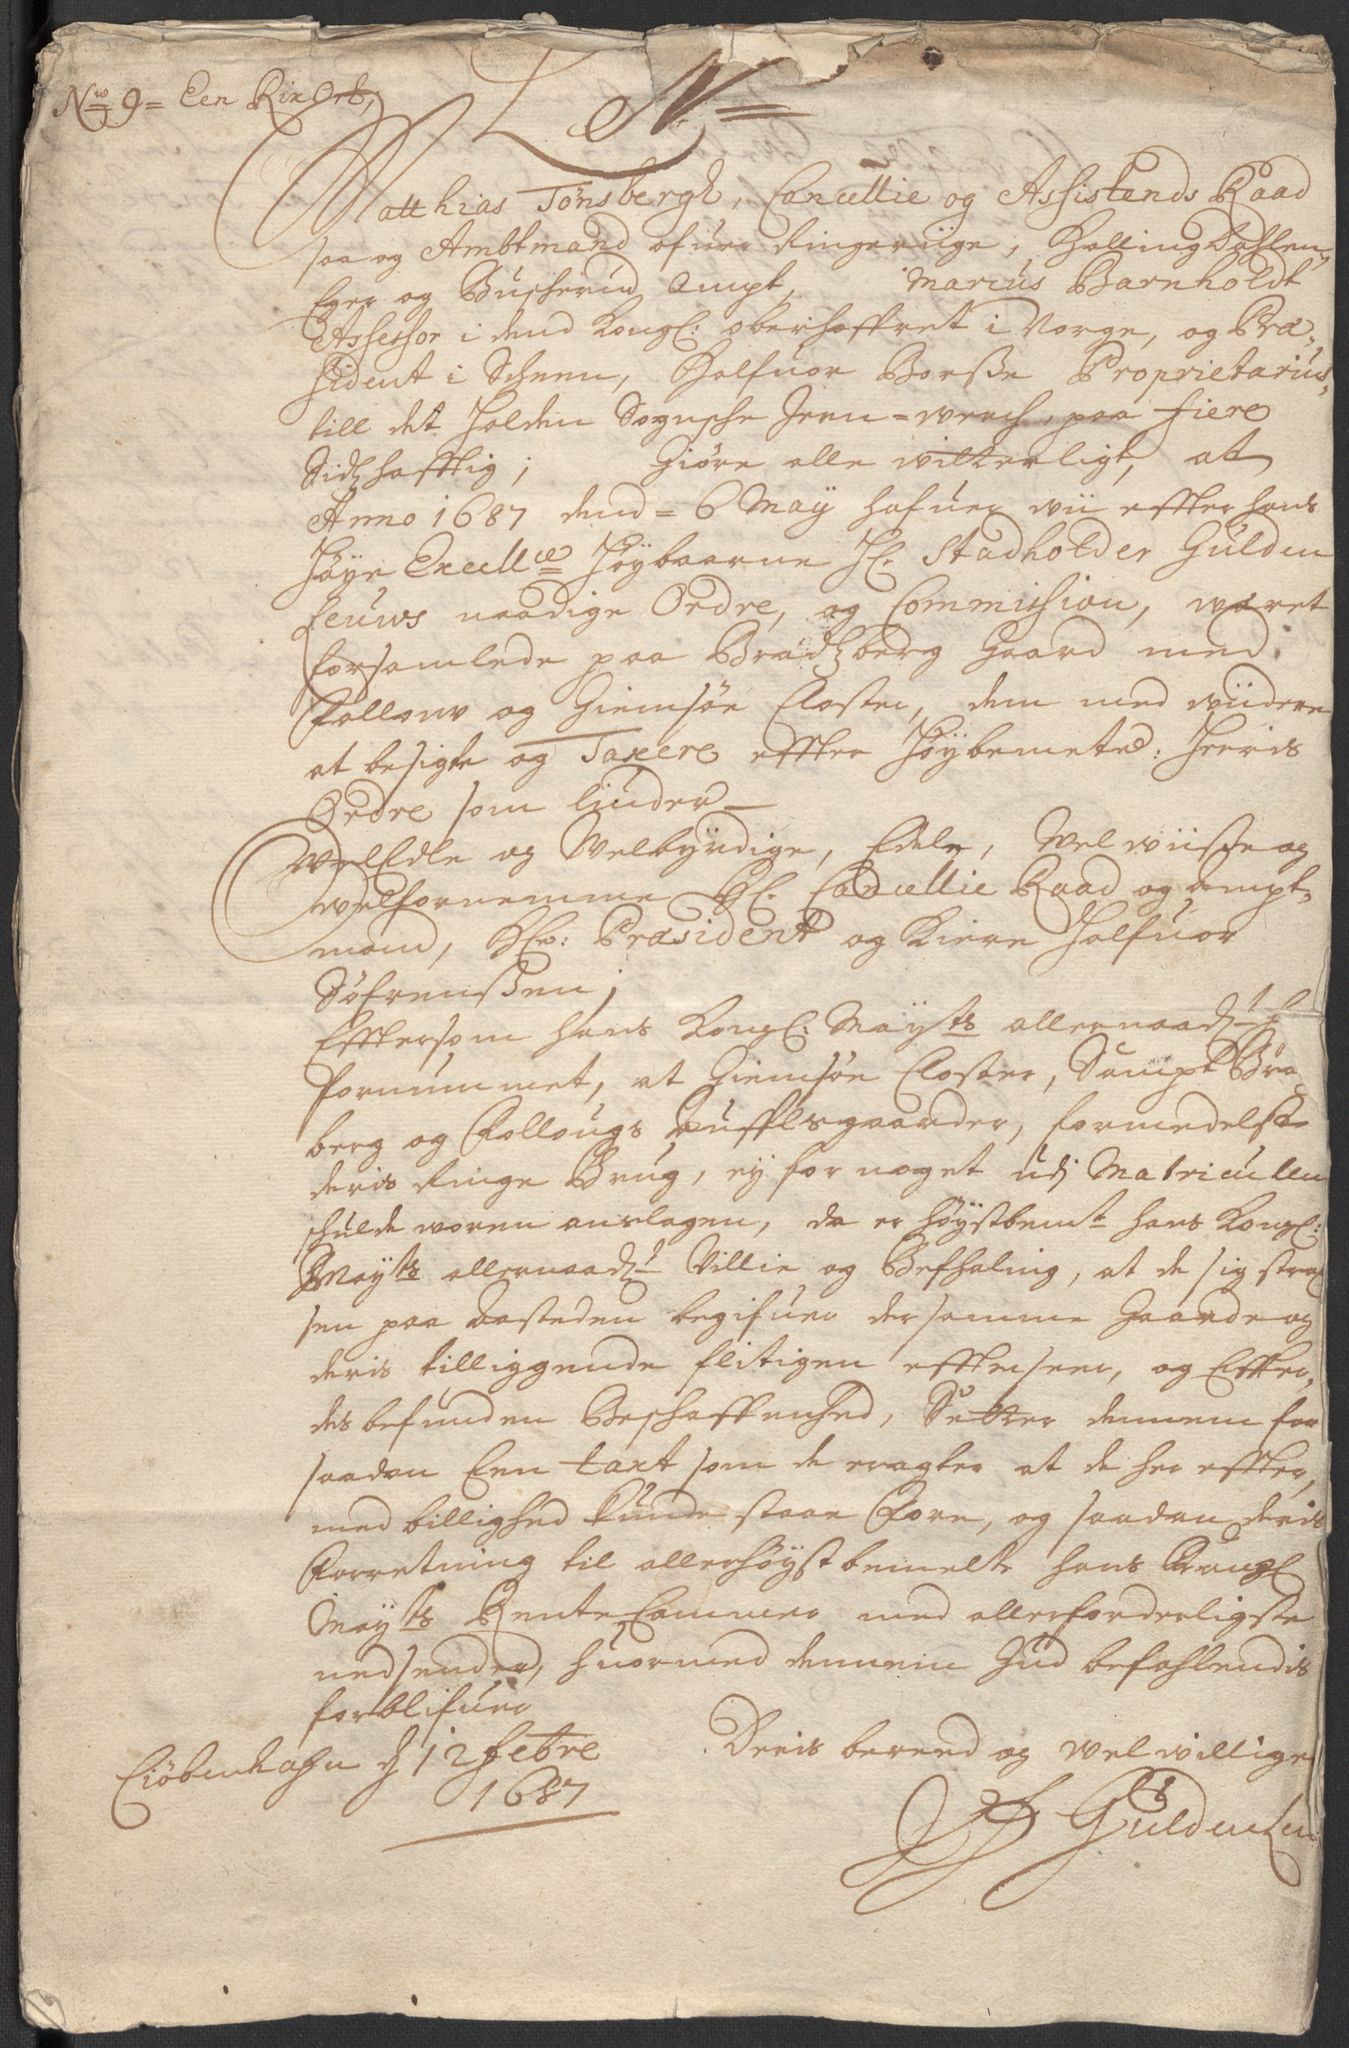 No 9 = Een Rix Ort,
N
Matthias Tønsbergh, Cancellie og Assistends Raad
saa og Ambtmand ofuer Ringeriige, Hallingdahlen,
Eger og Buscherud Ampt, Marcus Barnholdt
Assessor i dend Kongl: oberhoffret i Norge, og Præ-
sident i Scheen, Halfuor Borsse Proprietarius
till det Holden Sognsche Jern=werch, paa Fiere
Sidhafftig, Giøre alle witterligt, at
Anno 1687 dend = 6 May hafuer wii effter hans
Høye Excellce Høybaarne Hl. Stadholder Gulden
Leuws naadige Ordre, og Commission, wæret
forsamlede paa Bradtzberg Gaard med
Follouw og Giemsøe Closter, dem med wiidere
at besigte og Taxere effter Høybemelte: Herris
Ordre som liuder
WelEdle og Welbyrdige, Edele, Wel wiisse og
welfornemme Hl. Cancellie Raad og Ampt-
mand, Hr: Præsident og Kiere Halfuor
Søfrenssen,
Efftersom hans Kongl: Mayts allernaadt
fornummet, at Giemsøe Closter, Sampt Bra
berg og Follougs Auffelsgaarder, formedelst
deris Ringe Brug, ey for noget udj Matriculen
schulde woren anslagen, da er høystbemte hans Kongl:
Mayts allernaadt Villie og Befhaling, at de sig strax
sen paa Aasteden begifuer der samme Gaarde og
deris tilliggende flitigen effterseer, og Effter
des befunden Beschaffenhed, Setter dennem for
saadan Een taxt som de eragter at de her effter,
med billighed kunde staae Fore, og saadan deris
Forretning til allerhøystbemelte hans Kongl
Mayts Rente Cammer med allerforderligste
nedsender, huormed dennem Gud befahlendis
forblifuer
Deris bereed og welwillige
Ciøbenhafn d 12 Febre
1687
Gulden Leu